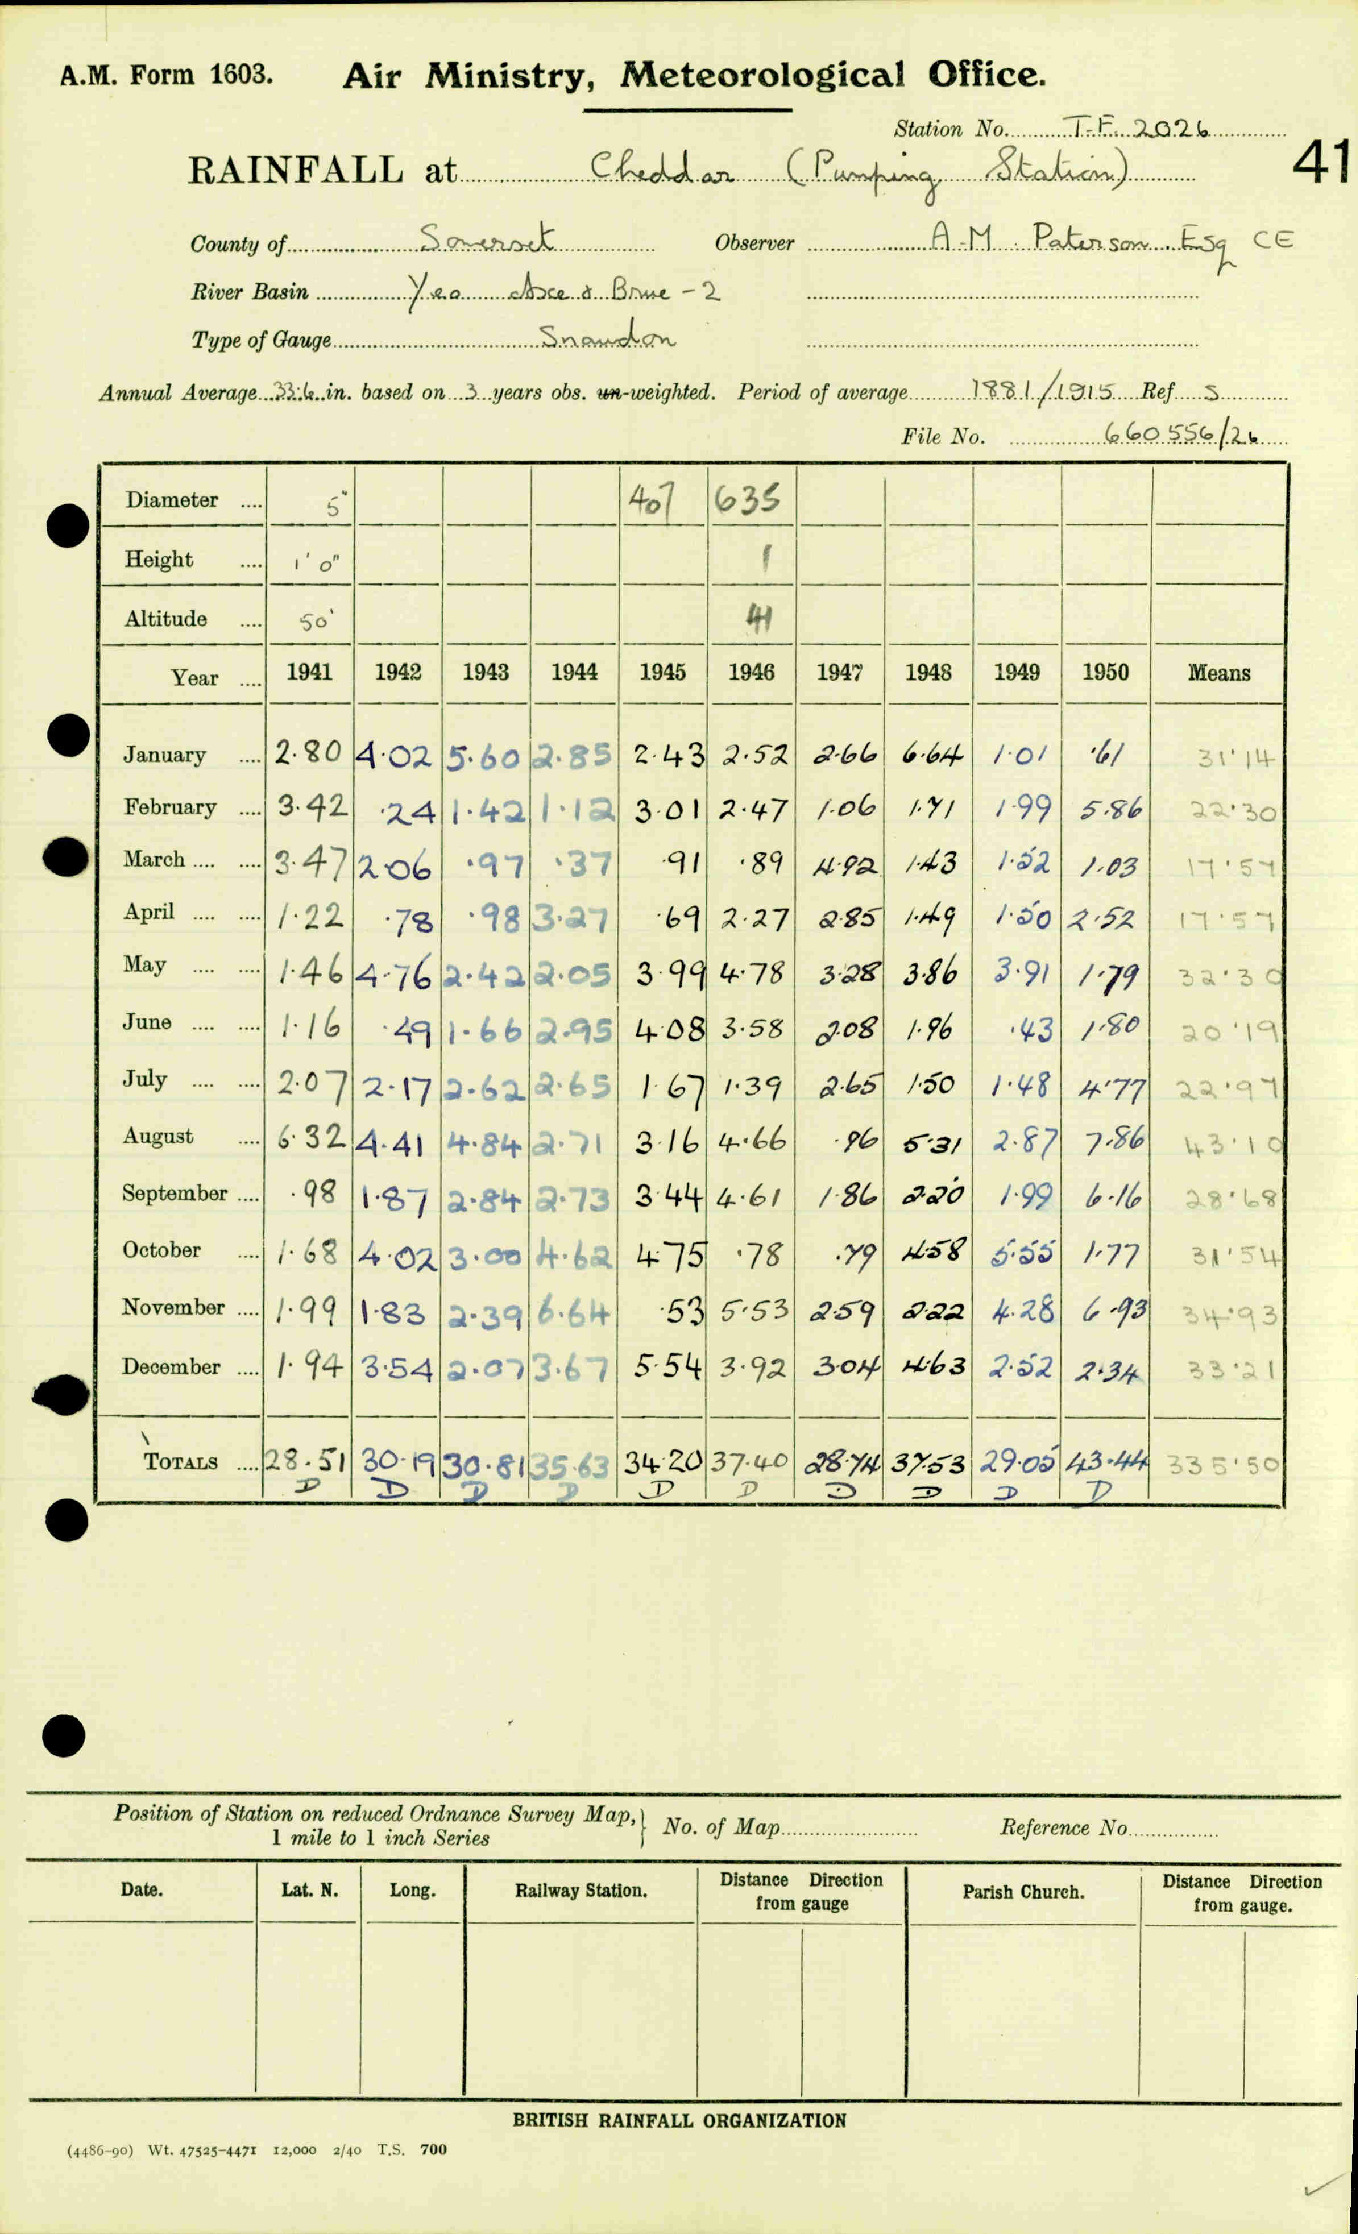 A.M. Form 1603. Air Ministry, Meteorological Office.
Station No. T.F. 2026
41
RAINFALL at Cheddar (Pumping Station)
County of Somerset Observer A.M. Paterson Esq CE
River Basin Yeo Axe & Brue - 2
Type of Gauge Snowdon
Annual Average 33.6 in. based on 3 years obs. un-weighted. Period of average 1881/1915 Ref S
File No. 660556/26
Diameter .... 5" 407 635
Height .... 1' 0" 1
Altitude .... 50' 41
Year .... 1941 1942 1943 1944 1945 1946 1947 1948 1949 1950 Means
January .... 2.80 4.02 5.60 2.85 2.43 2.52 2.66 6.64 1.01 .61 31.14
February .... 3.42 .24 1.42 1.12 3.01 2.47 1.06 1.71 1.99 5.86 22.30
March .... .... 3.47 2.06 .97 .37 .91 .89 4.92 1.43 1.52 1.03 17.57
April .... .... 1.22 .78 .98 3.27 .69 2.27 2.85 1.49 1.50 2.52 17.57
May .... .... 1.46 4.76 2.42 2.05 3.99 4.78 3.28 3.86 3.91 1.79 32.30
June .... .... 1.16 .49 1.66 2.95 4.08 3.58 2.08 1.96 .43 1.80 20.19
July .... .... 2.07 2.17 2.62 2.65 1.67 1.39 2.65 1.50 1.48 4.77 22.97
August .... 6.32 4.41 4.84 2.71 3.16 4.66 .96 5.31 2.87 7.86 43.10
September .... .98 1.87 2.84 2.73 3.44 4.61 1.86 2.20 1.99 6.16 28.68
October .... 1.68 4.02 3.00 4.62 4.75 .78 .79 4.58 5.55 1.77 31.54
November .... 1.99 1.83 2.39 6.64 .53 5.53 2.59 2.22 4.28 6.93 34.93
December .... 1.94 3.54 2.07 3.67 5.54 3.92 3.04 4.63 2.52 2.34 33.21
TOTALS .... 28.51 30.19 30.81 35.63 34.20 37.40 28.74 37.53 29.05 43.44 335.50
D D D D D D D D D D
Position of Station on reduced Ordnance Survey Map, 1 mile to 1 inch Series } No. of Map Reference No.
Date. Lat. N. Long. Railway Station. Distance Direction from gauge Parish Church. Distance Direction from gauge.
BRITISH RAINFALL ORGANIZATION
(4486-90) Wt. 47525-4471 12,000 2/40 T.S. 700